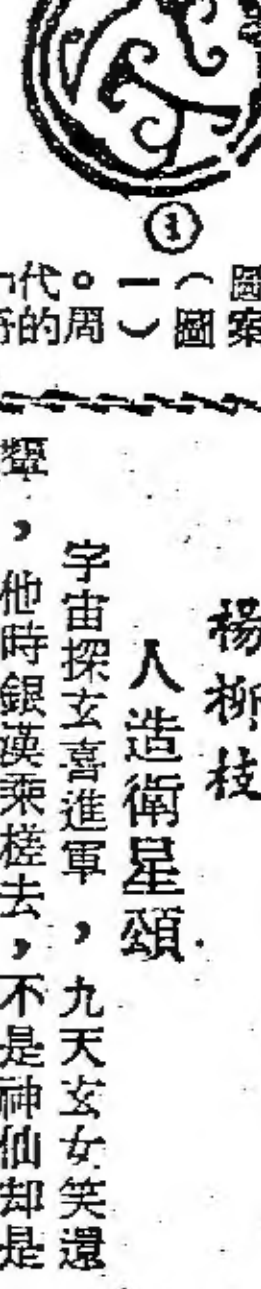 ①
圖案
(圖
一)
。周
代的
楊柳枝
人造衛星頌
宇宙探玄喜進軍，九天玄女笑還
顰，他時銀漢乘槎去，不是神仙却是